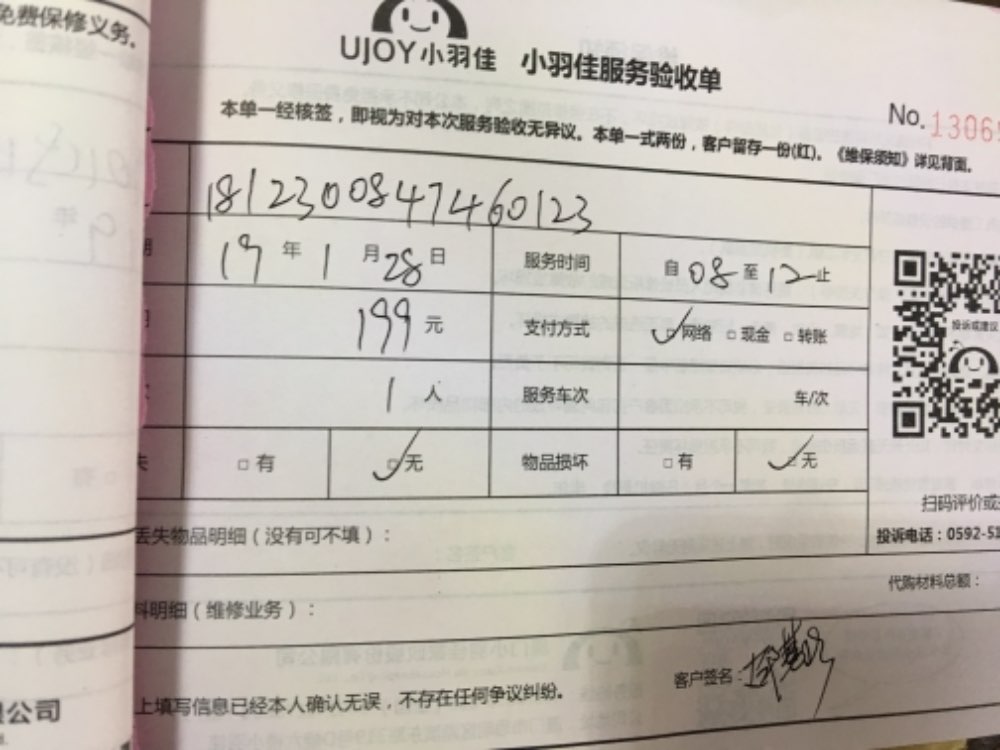 免费保修义务。
UJOY小羽佳 小羽佳服务验收单
No.1306
本单一经核签，即视为对本次服务验收无异议。本单一式两份，客户留存一份(红)。《维保须知》详见背面。
1812300847460123
19年1月28日 服务时间 自08至12止
199元 支付方式 网络 □现金 □转账
1人 服务车次 车/次
失 □有 □无 物品损坏 □有 □无
投诉或建议
扫码评价或
丢失物品明细（没有可不填）：
投诉电话：0592-51
代购材料总额：
料明细（维修业务）：
客户签名：
上填写信息已经本人确认无误，不存在任何争议纠纷。
公司